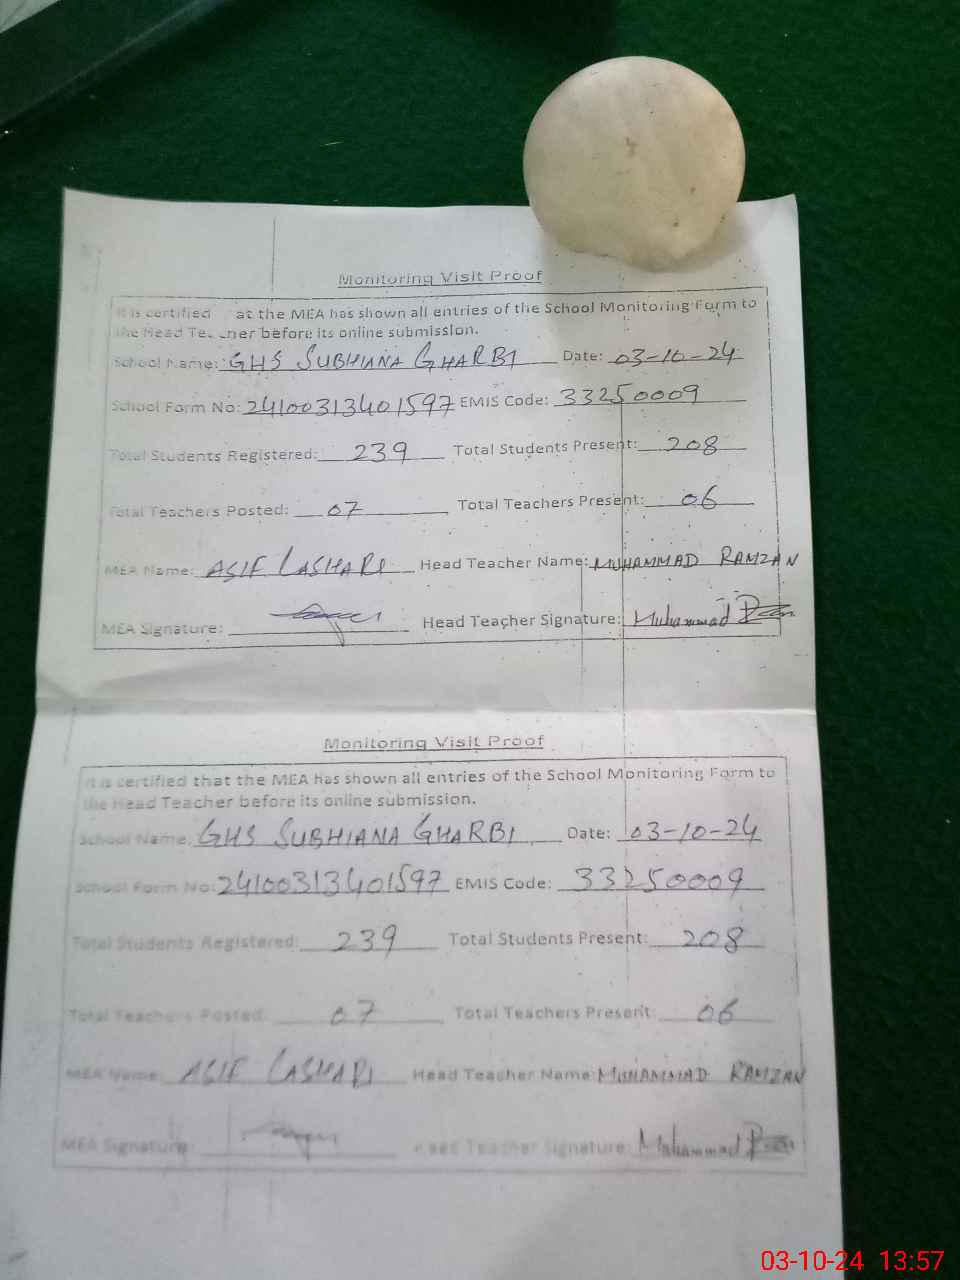 Monitoring Visit Proof
It is certified at the MEA has shown all entries of the School Monitoring Form to
the Head Teacher before its online submission.
School Name: GHS SUBHIANA GHARBI Date: 03-10-24
School Form No: 24100313401597 EMIS Code: 33250009
Total Students Registered: 239 Total Students Present: 208
Total Teachers Posted: 07 Total Teachers Present: 06
MEA Name: ASIF LASHARI Head Teacher Name: MUHAMMAD RAMZAN
MEA Signature: Head Teacher Signature: Muhammad
Monitoring Visit Proof
It is certified that the MEA has shown all entries of the School Monitoring Form to
the Head Teacher before its online submission.
School Name: GHS SUBHIANA GHARBI Date: 03-10-24
School Form No: 24100313401597 EMIS Code: 33250009
Total Students Registered: 239 Total Students Present: 208
Total Teachers Posted: 07 Total Teachers Present: 06
MEA Name: ASIF LASHARI Head Teacher Name: MUHAMMAD RAMZAN
MEA Signature: Head Teacher Signature: Muhammad
03-10-24 13:57